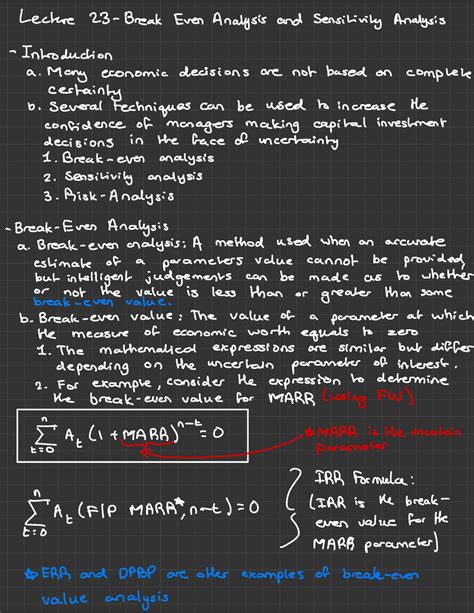 Lecture 23 - Break Even Analysis and Sensitivity Analysis
- Introduction
a. Many economic decisions are not based on complete
certainty
b. Several techniques can be used to increase the
confidence of managers making capital investment
decisions in the face of uncertainty
1. Break-even analysis
2. Sensitivity analysis
3. Risk-Analysis
- Break-Even Analysis
a. Break-even analysis: A method used when an accurate
estimate of a parameters value cannot be provided,
but intelligent judgements can be made as to whether
or not the value is less than or greater than some
break-even value.
b. Break-even value: The value of a parameter at which
the measure of economic worth equals to zero
1. The mathematical expressions are similar but differ
depending on the uncertain parameter of interest.
2. For example, consider the expression to determine
the break-even value for MARR (using FW)
n
∑ A_t (1 + MARR)^{n-t} = 0
t=0
* MARR is the uncertain
parameter
n
∑ A_t (F|P MARR*, n-t) = 0
t=0
IRR Formula:
(IRR is the break-
even value for the
MARR parameter)
* ERR and DPBP are other examples of break-even
value analysis